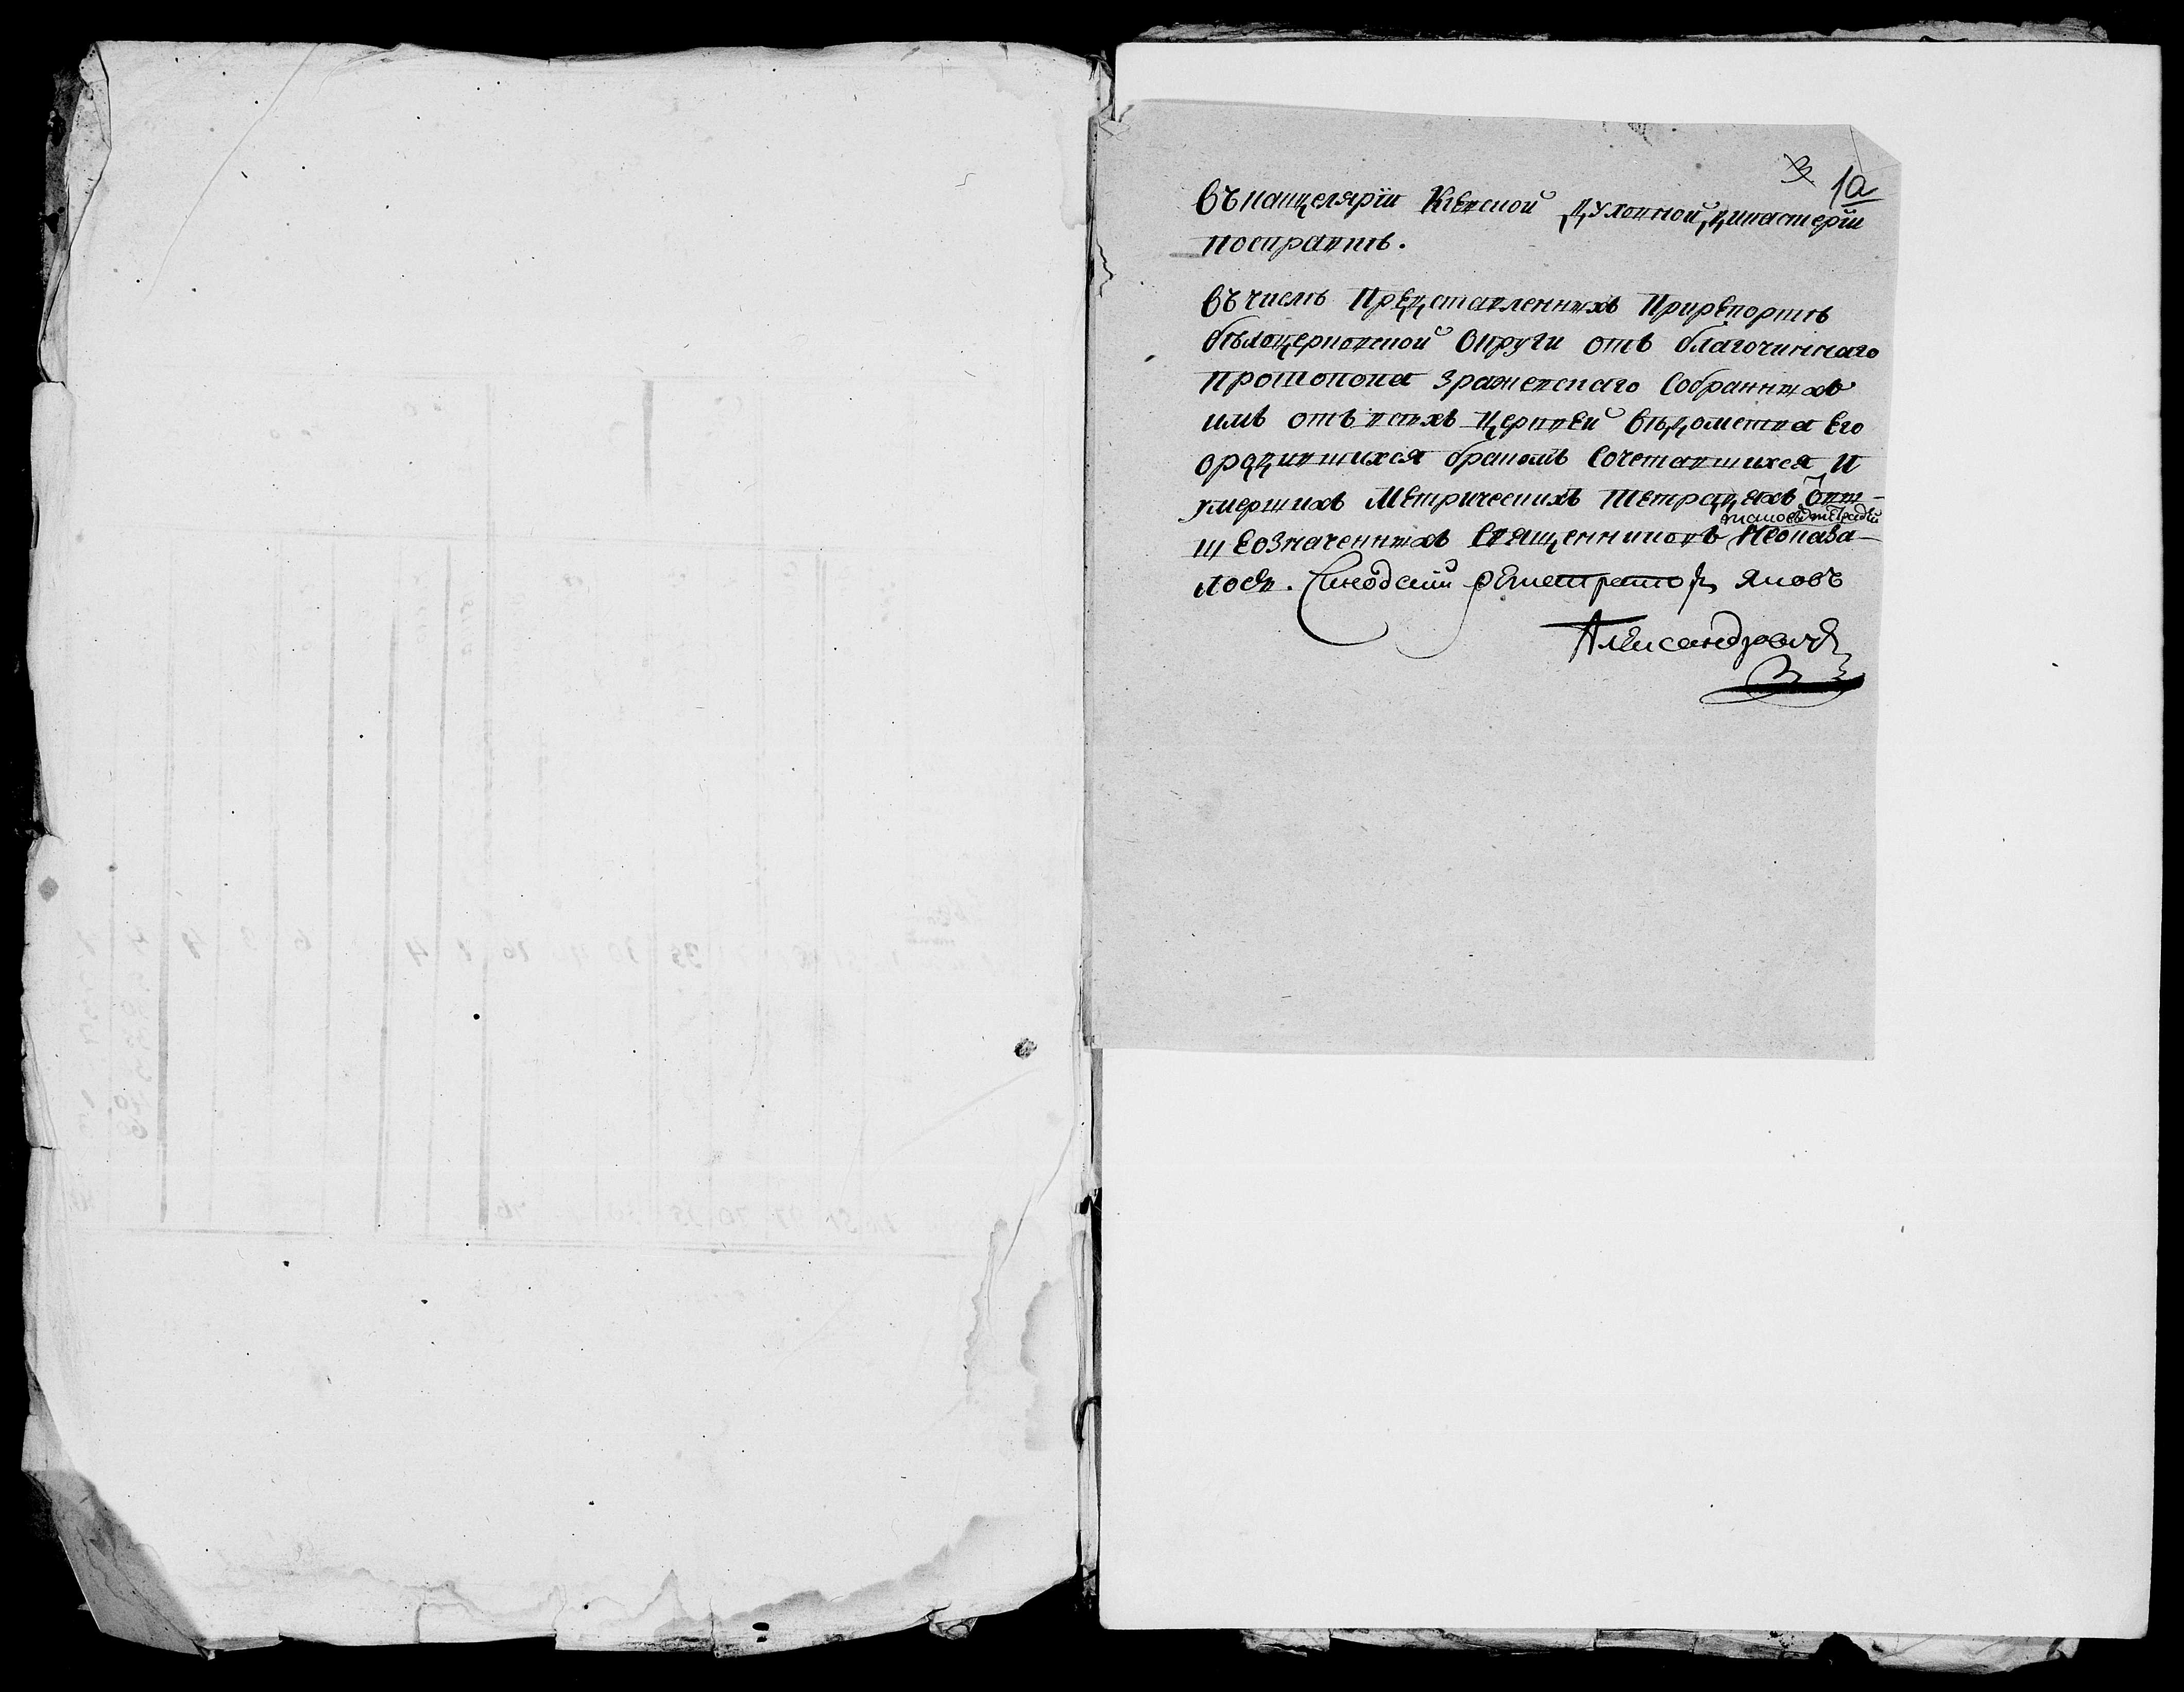 3 1а
Въ канцелярїи Кіевской Духовной Дикастерїи
посправкѣ.
Въ числѣ Представленныхъ Прирепортѣ
бѣлоцерковской Округи отъ благочиннаго
Протопопа Зражевскаго Собранныхъ
имъ отъ всѣхъ Церквей вѣдомства Его
ородившихся бракомъ Сочетавшихся И
умершихъ Метрическихъ Тетрадехъ Отъ
таковыхъ тетрадей
ш Еозначенныхъ Священниковъ Неоказа-
лось. Сѵнодскій регистраторъ Яковъ
Александровичъ